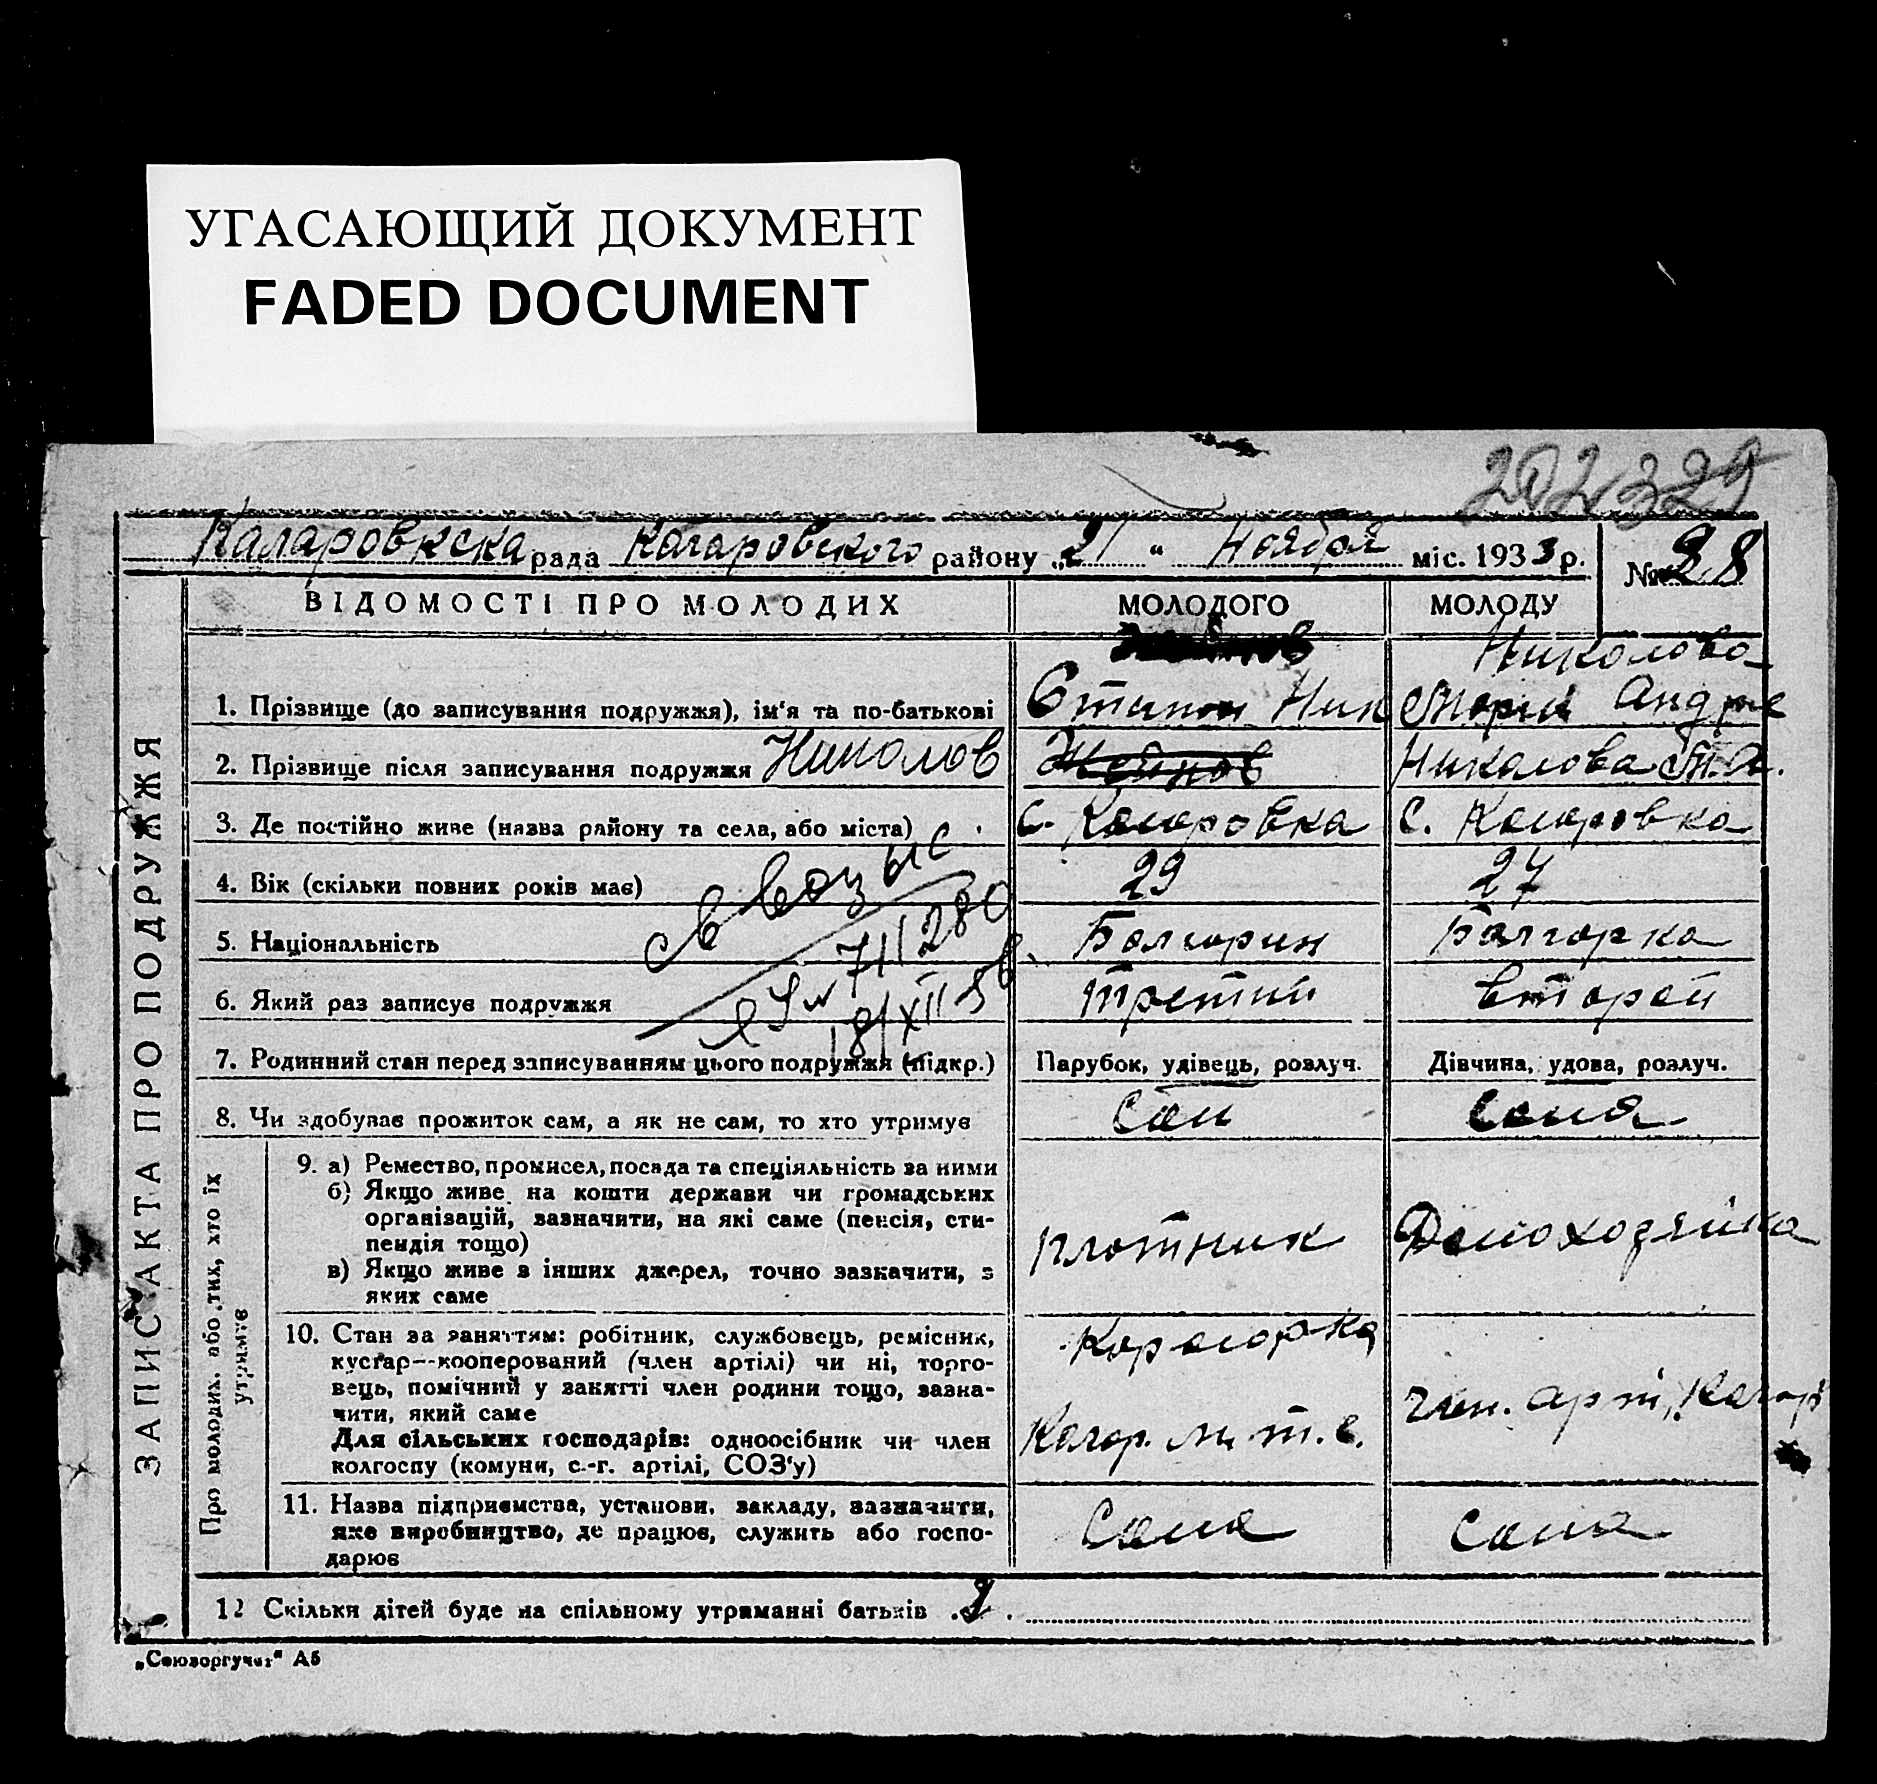 УГАСАЮЩИЙ ДОКУМЕНТ
FADED DOCUMENT
202 329
рада Коларовского району „21“ Ноября міс. 1933 р.
№ 38
ЗАПИСКА ПРО ПОДРУЖЖЯ
ВІДОМОСТІ ПРО МОЛОДИХ МОЛОДОГО МОЛОДУ
Николова
1. Прізвище (до записування подружжя), ім'я та по-батькові Степан Ник Мария Андре
2. Прізвище після записування подружжя Николов Николова М.А.
3. Де постійно живе (назва району та села, або міста) с. Коларовка с. Коларовка
4. Вік (скільки повних років має) 29 27
5. Національність Болгарин Болгарка
6. Який раз записує подружжя третий второй
7. Родинний стан перед записуванням цього подружжя (підкр.) Парубок, удівець, розлуч. Дівчина, удова, розлуч.
8. Чи здобував прожиток сам, а як не сам, то хто утримує Сам Сама
Про молодих, або тих, хто їх утримує
9. а) Ремество, промисел, посада та спеціяльність за ними
б) Якщо живе на кошти держави чи громадських
організацій, зазначити, на які саме (пенсія, сти-
пендія тощо)
в) Якщо живе з інших джерел, точно зазначити, з
яких саме
плотник Домохозяйка
10. Стан за заняттям: робітник, службовець, ремісник,
кустар—кооперований (член артілі) чи ні, торго-
вець, помічний у занятті член родини тощо, зазна-
чити, який саме
Для сільських господарів: одноосібник чи член
колгоспу (комуни, с.-г. артілі, СОЗ'у)
Колар. м.т.с. член. арт,
11. Назва підприємства, установи, закладу, зазначити,
яке виробництво, де працює, служить або госпо-
дарює
Сама Сама
12 Скільки дітей буде на спільному утриманні батьків
„Союзоргучет“ А5